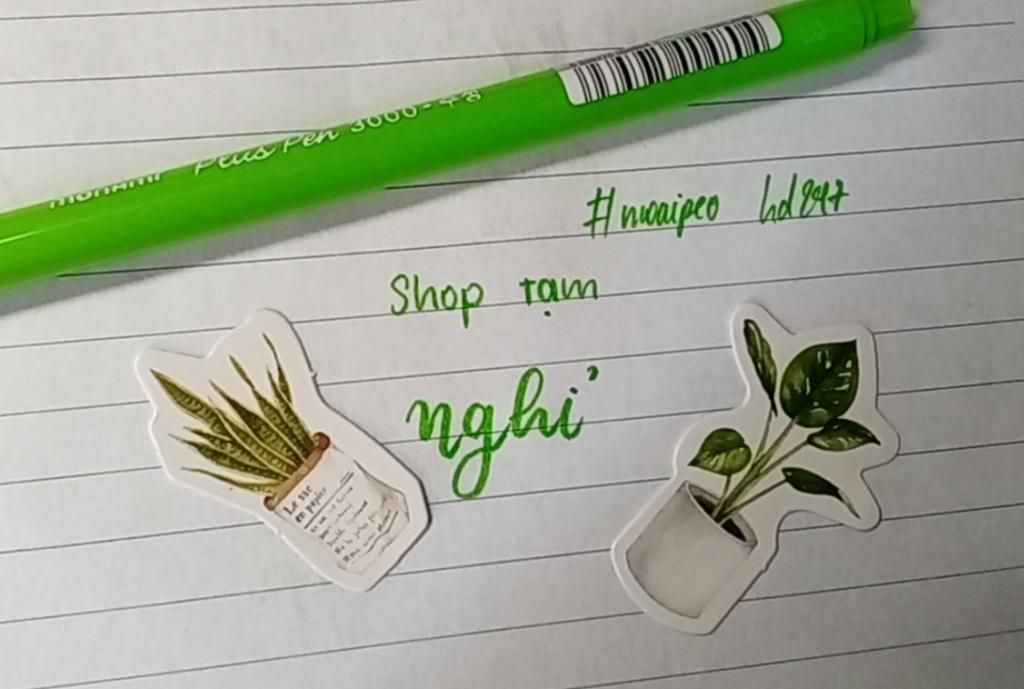 MONAMI Plus Pen 3000
#nwaipeo hd247
Shop tạm
nghỉ
Le sac
en papier